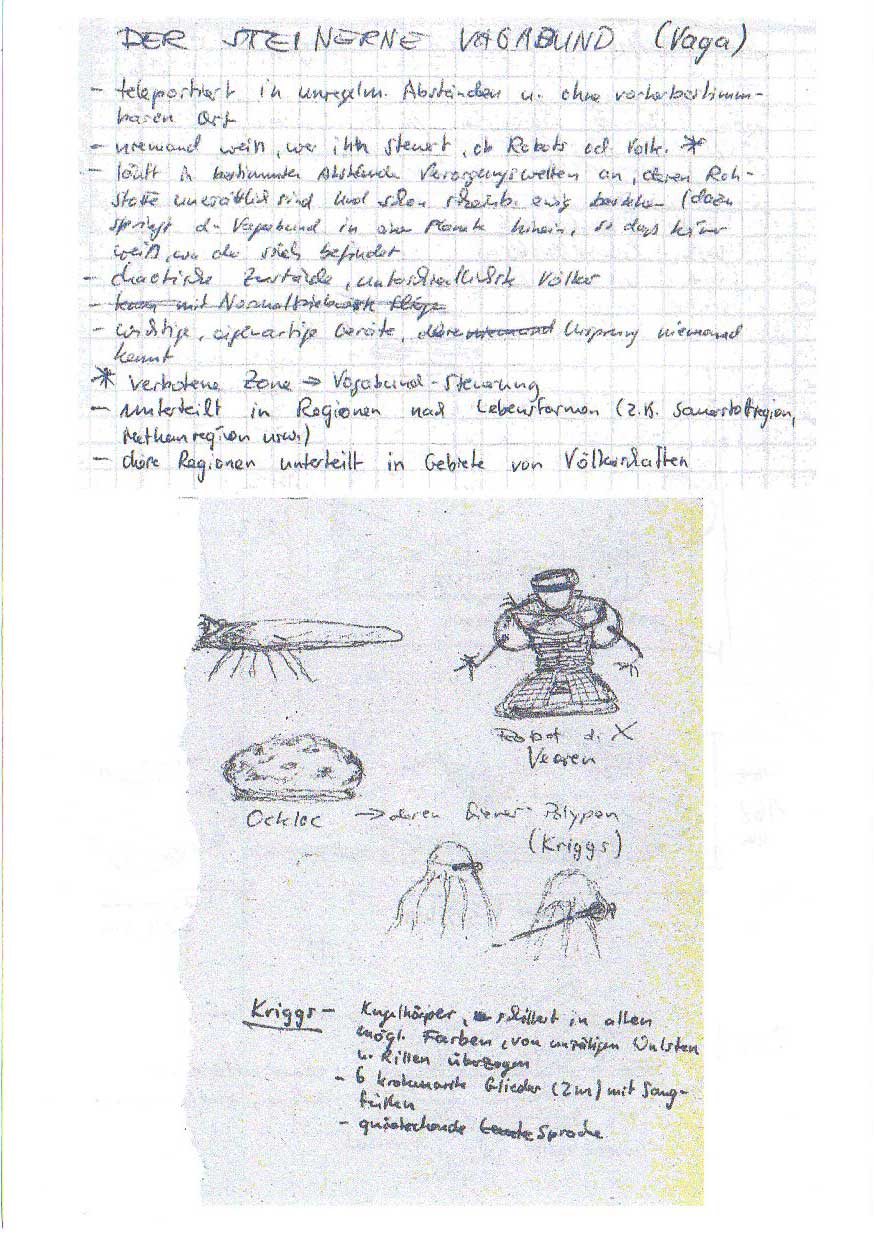 DER STEINERNE VAGABUND (Vaga)
- teleportiert in unregelm. Abständen u. ohne vorherbestimm-
baren Ort
- niemand weiß, wer ihn steuert, ob Robots od. Volk. *
- läuft in bestimmten Abständen Versorgungswelten an, deren Roh-
stoffe unersättlich sind und schon scheinb. ewig bestehen (dazu
springt d. Vagabund in einen Planeten hinein, so dass keiner
weiß, wo er sich befindet
- chaotische Zustände, unterschiedlichste Völker
- kann mit Normaltriebwerk fliegen
- wichtige, eigenartige Geräte, deren niemand Ursprung niemand
kennt
* verbotene Zone → Vagabund-Steuerung
- unterteilt in Regionen nach Lebensformen (z.B. Sauerstoffregion,
Methanregion usw.)
- diese Regionen unterteilt in Gebiete von Völkerschaften
Robot d. X
Veeren
Ockloc → deren Diener Polypen
(Kriggs)
Kriggs - Kugelkörper, schillert in allen
mögl. Farben, von unzähligen Wülsten
u. Rillen überzogen
- 6 Glieder (2m) mit Saug-
füßen
- Sprache